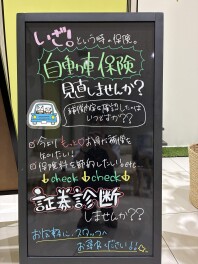 いざ。という時の保険。
自動車保険
見直しませんか？
補償内容を確認したのは
いつですか？？
☑今よりもっとお得な補償を
知りたい！
☑保険料を節約したい！etc
↓check↓check↓
証券診断
しませんか？？
お気軽に、スタッフへ
お声かけください!!